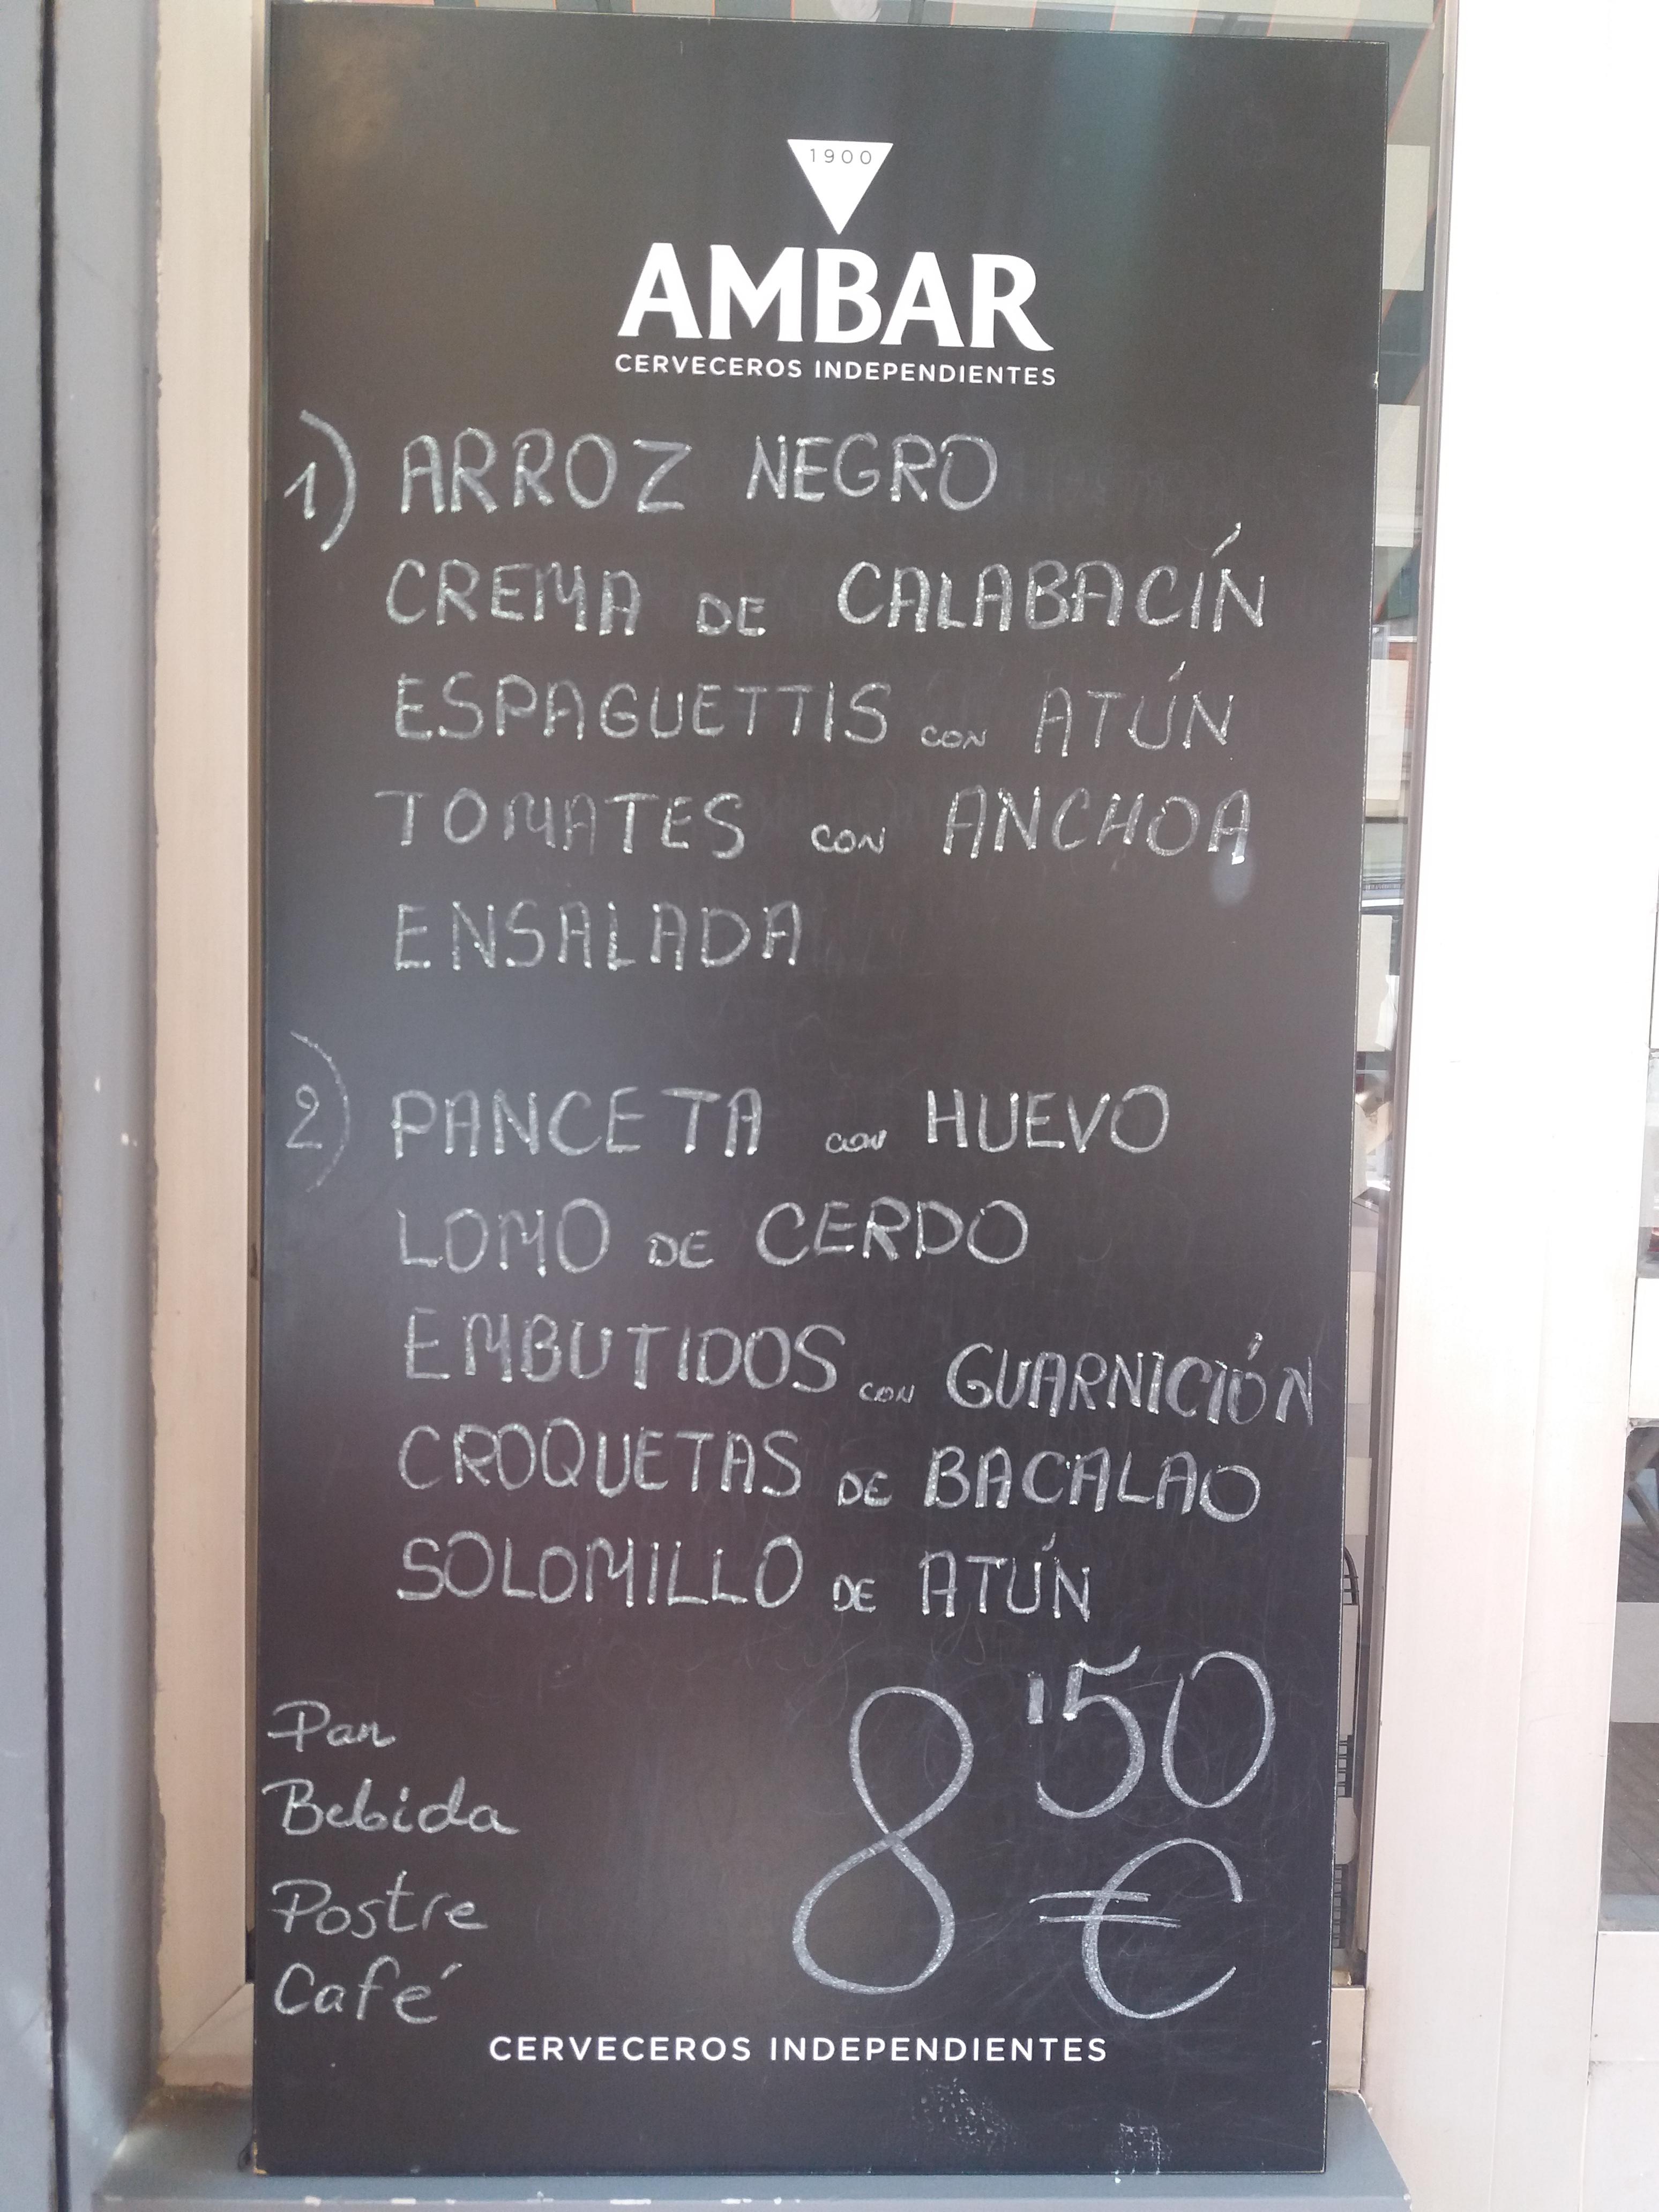 1900
AMBAR
CERVECEROS INDEPENDIENTES
1) ARROZ NEGRO
CREMA DE CALABACÍN
ESPAGUETTIS CON ATÚN
TOMATES CON ANCHOA
ENSALADA
2) PANCETA con HUEVO
LOMO DE CERDO
EMBUTIDOS CON GUARNICIÓN
CROQUETAS DE BACALAO
SOLOMILLO DE ATÚN
Pan
Bebida
Postre
Café
8'50
€
CERVECEROS INDEPENDIENTES